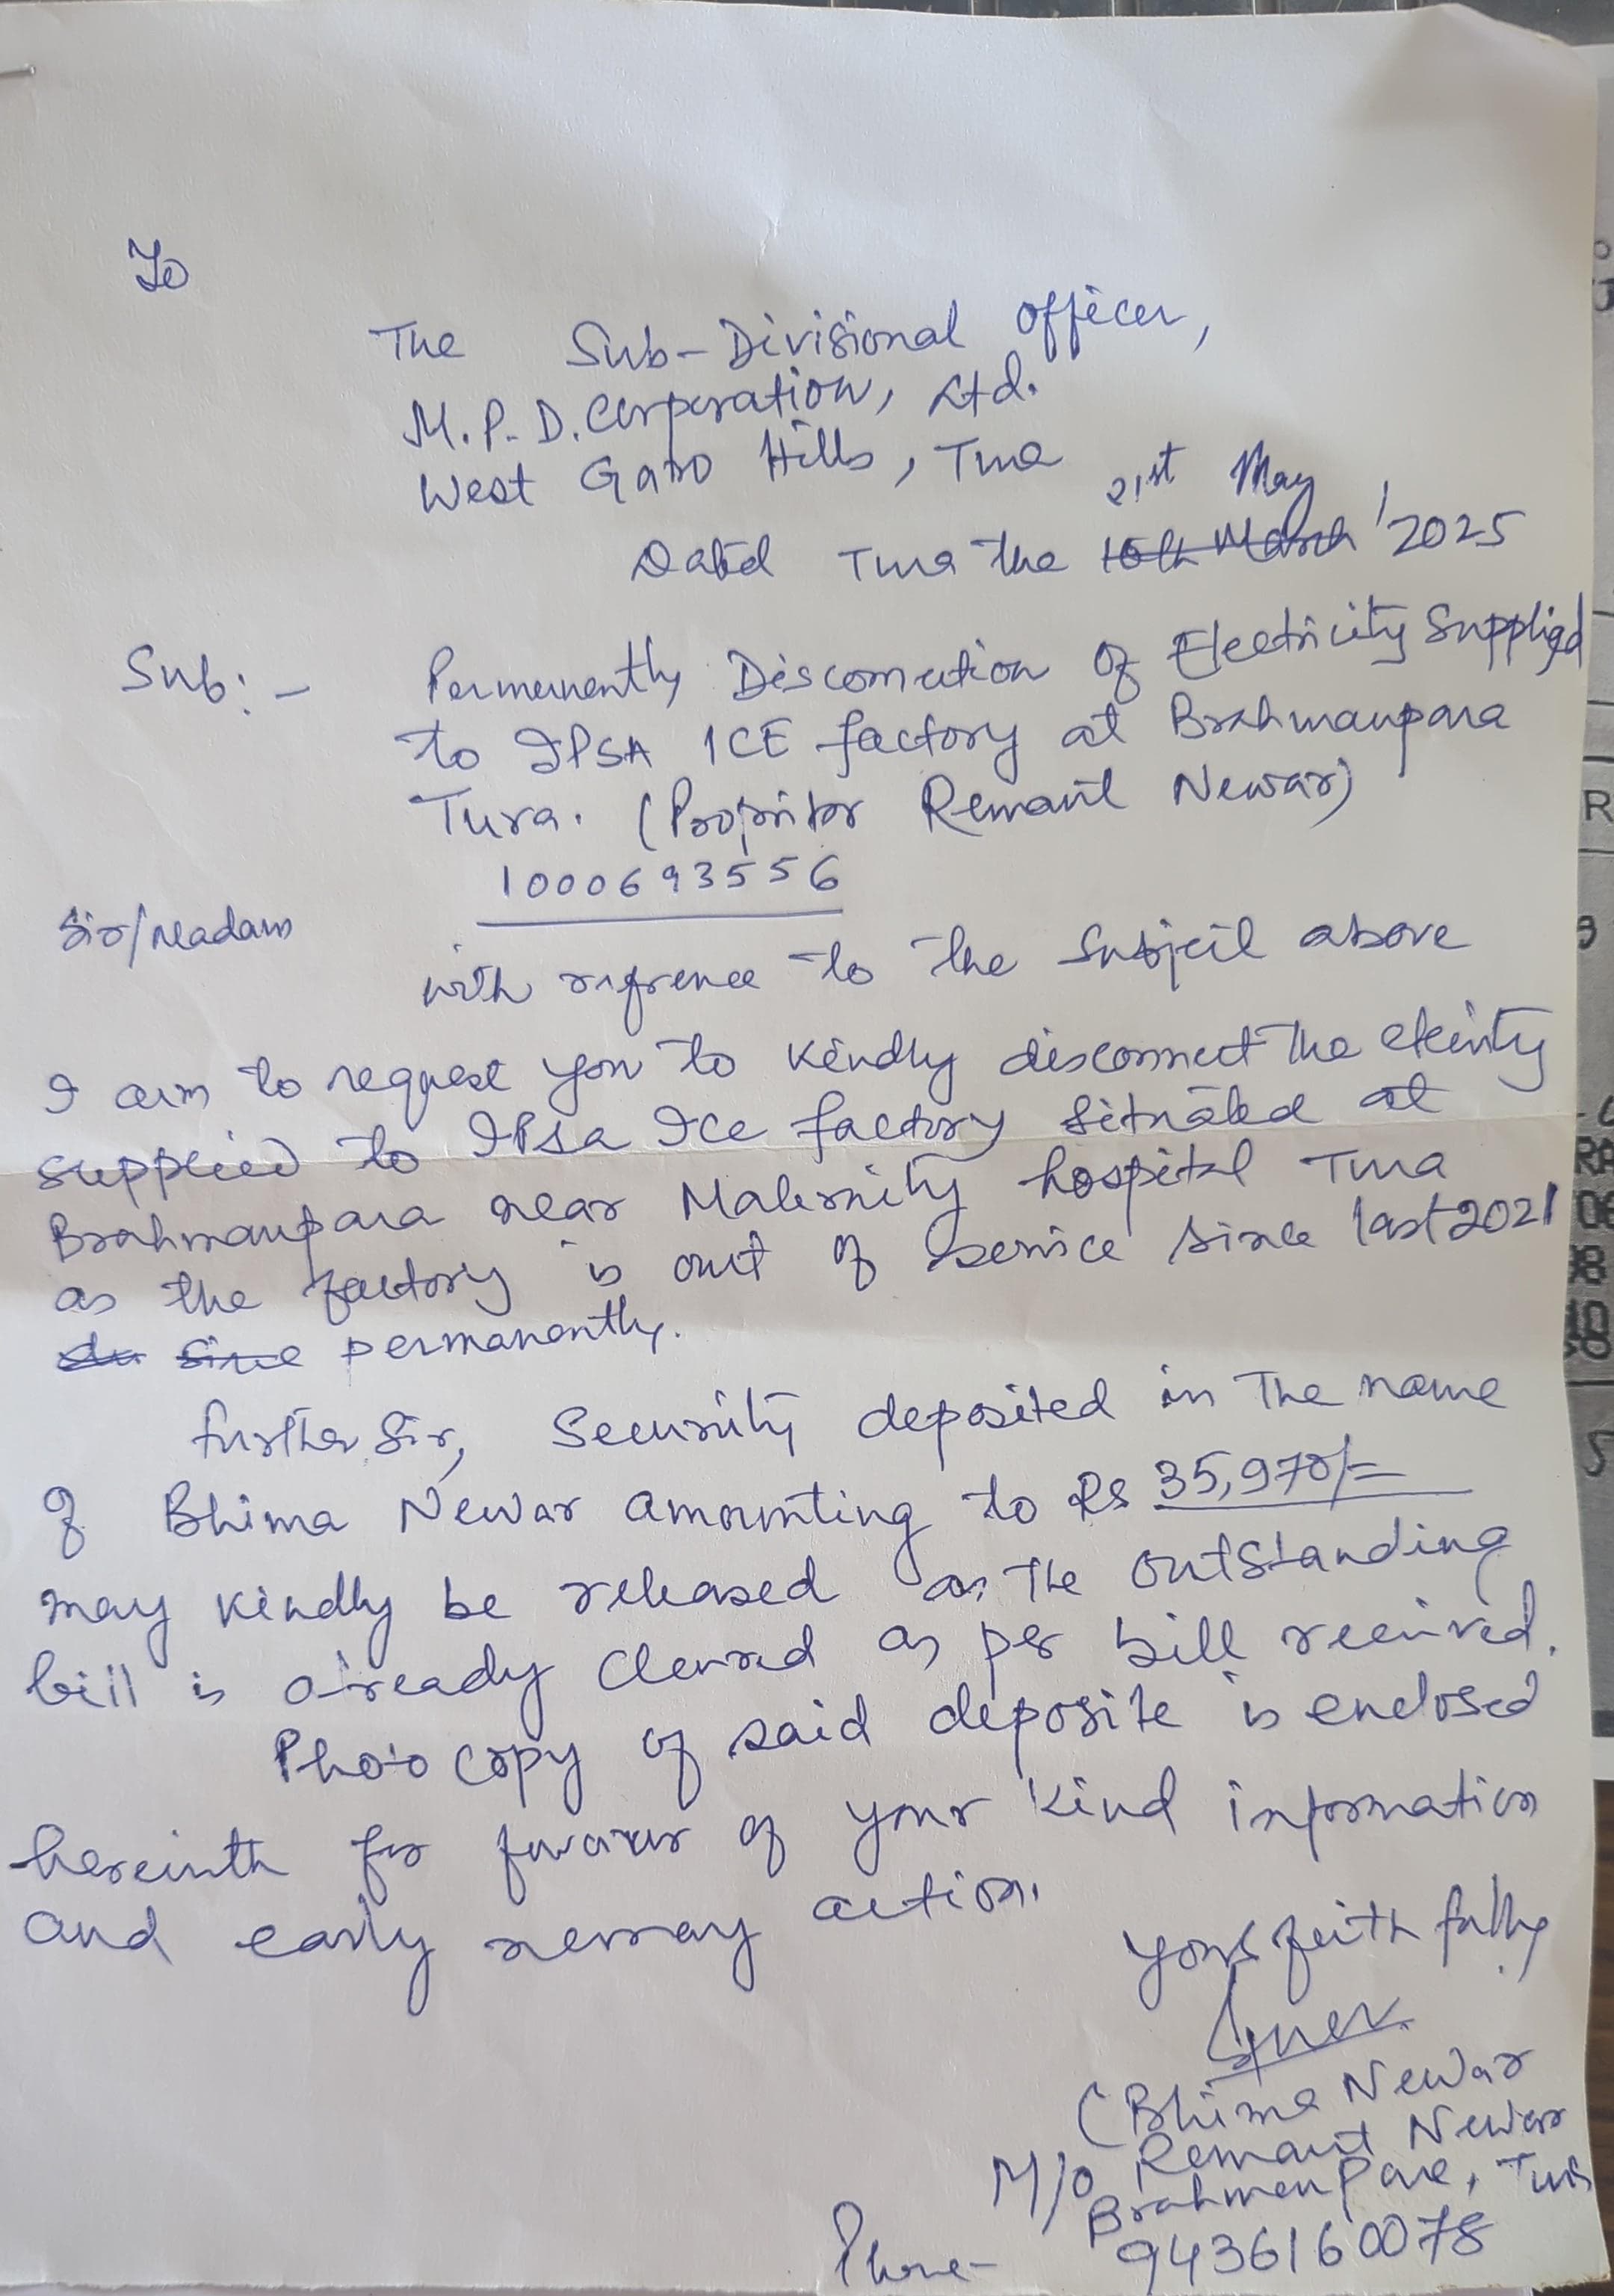 To
The Sub-Divisional Officer,
M.P.D. Corporation, Ltd.
West Garo Hills, Tura
21st May
Dated Tura the 15th March '2025
Sub:- Permenently Disconnection Of Electricity Supplied
to IPSA ICE factory at Brahmanpara
Tura. (Propritor Remant Newar)
1000693556
Sir/Madam
with refrence to the Subject above
I am to request you to kindly disconnect the
supplied to IPSA Ice factory Situated at
Brahmanpara near Maternity hospital Tura
as the factory is out of service since last 2021
since permanently.
further Sir, Security deposited in the name
of Bhima Newar amounting to Rs
may kindly be released as the outstanding
bill is already cleared as per bill received.
Photo copy of said deposite is enclosed
herewith for favour of your kind information
and early action.
Yours faithfully
(Bhima Newar
M/o Remant Newar
Brahmenpara, Tura
Phone- 9436160078